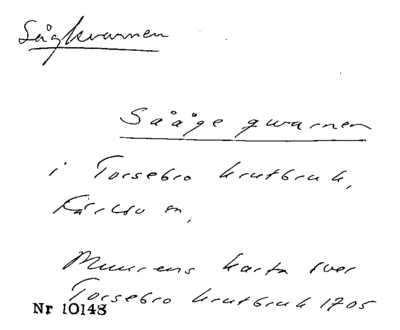 Sågkvarnen
Sååge qwarnen
i Torsebro krutbruk,
Färlöv sn,
Muurens karta över
Torsebro krutbruk 1705
Nr 10148